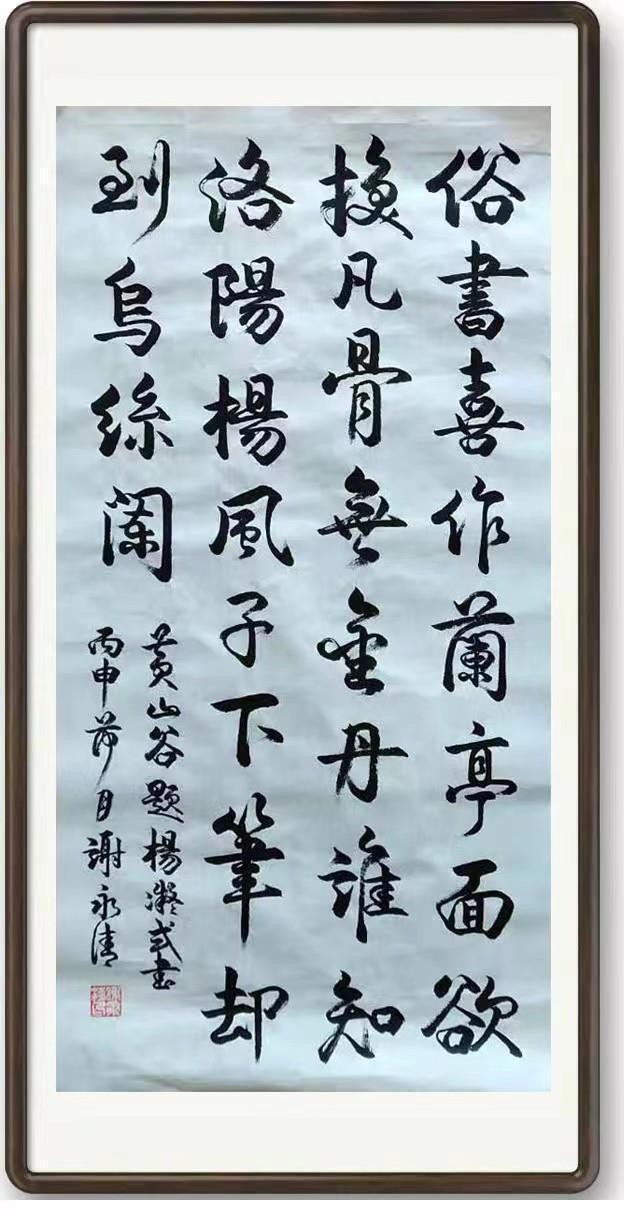 俗書喜作蘭亭面欲
換凡骨無金丹誰知
洛陽楊風子下筆却
到烏絲闌
黃山谷題楊凝式書
丙申荷月謝永清